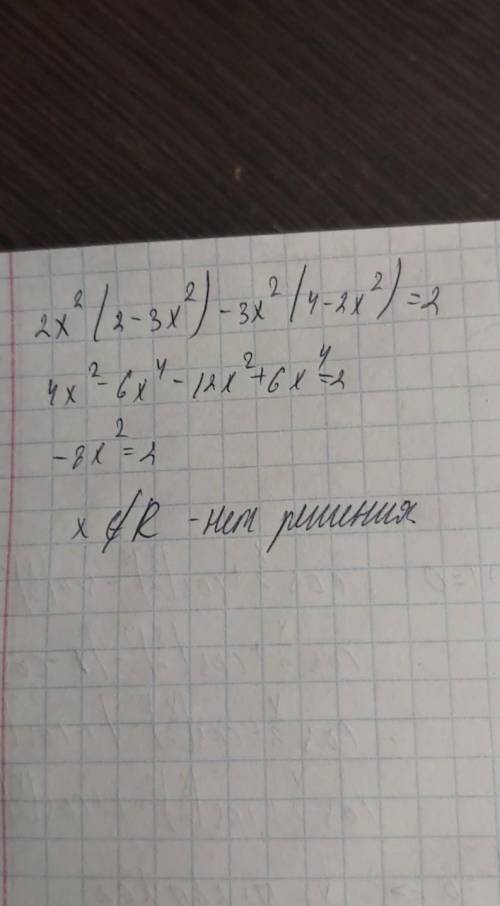 2x²(2-3x²)-3x²(4-2x²)=2
4x²-6x⁴-12x²+6x⁴=2
-8x²=2
x∉R - нет решения